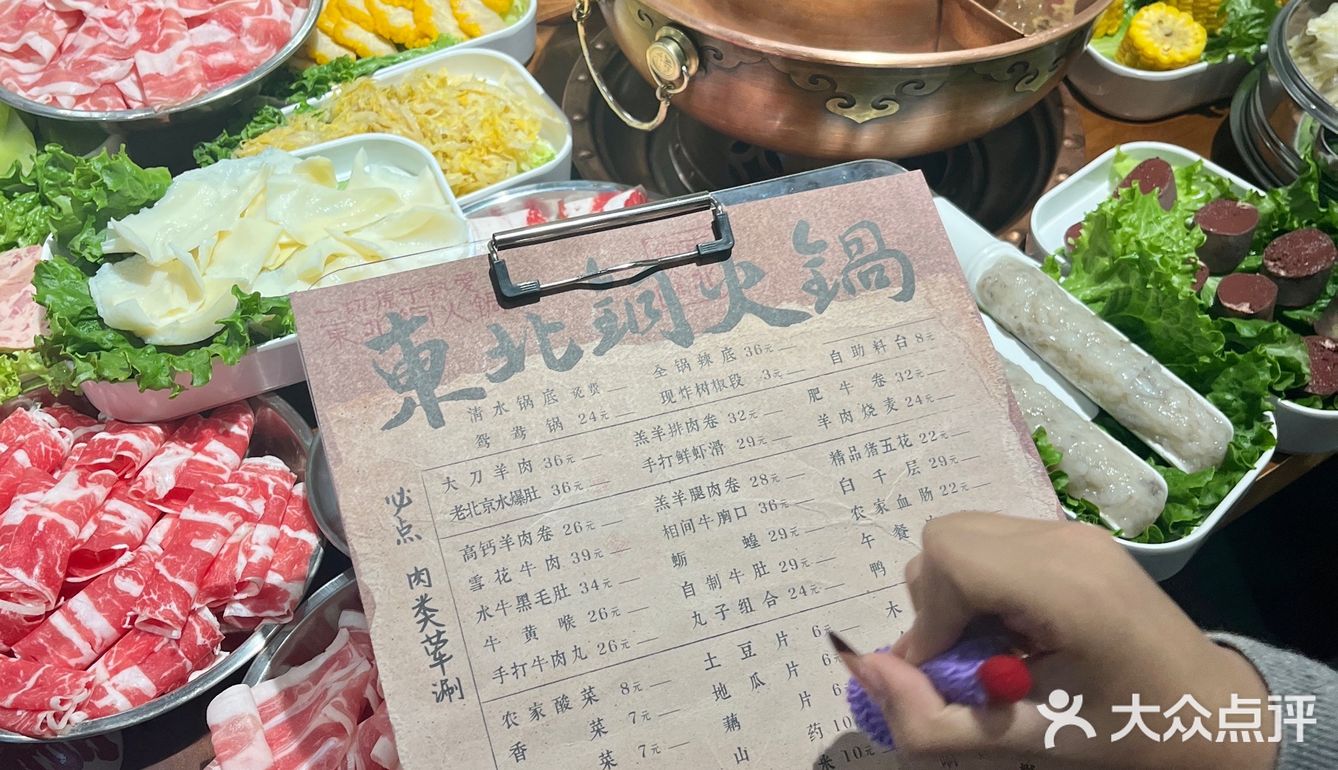 東北銅火鍋
清水锅底 免费 全锅辣底 36元 自助料台 8元
鸳鸯锅 24元 现炸树椒段 3元
必点
大刀羊肉 36元 羔羊排肉卷 32元 肥牛卷 32元
老北京水爆肚 36元 手打鲜虾滑 29元 羊肉烧麦 24元
肉类荤涮
高钙羊肉卷 26元 羔羊腿肉卷 28元 精品猪五花 22元
雪花牛肉 39元 相间牛胸口 36元 白千层 29元
水牛黑毛肚 34元 蛎蝗 29元 农家血肠 22元
牛黄喉 26元 自制牛肚 29元 午餐
手打牛肉丸 26元 丸子组合 24元 鸭
农家酸菜 8元 土豆片 6元 木
香菜 7元 地瓜片 6
菜 7元 藕片 6
山药 10
米 10元
大众点评